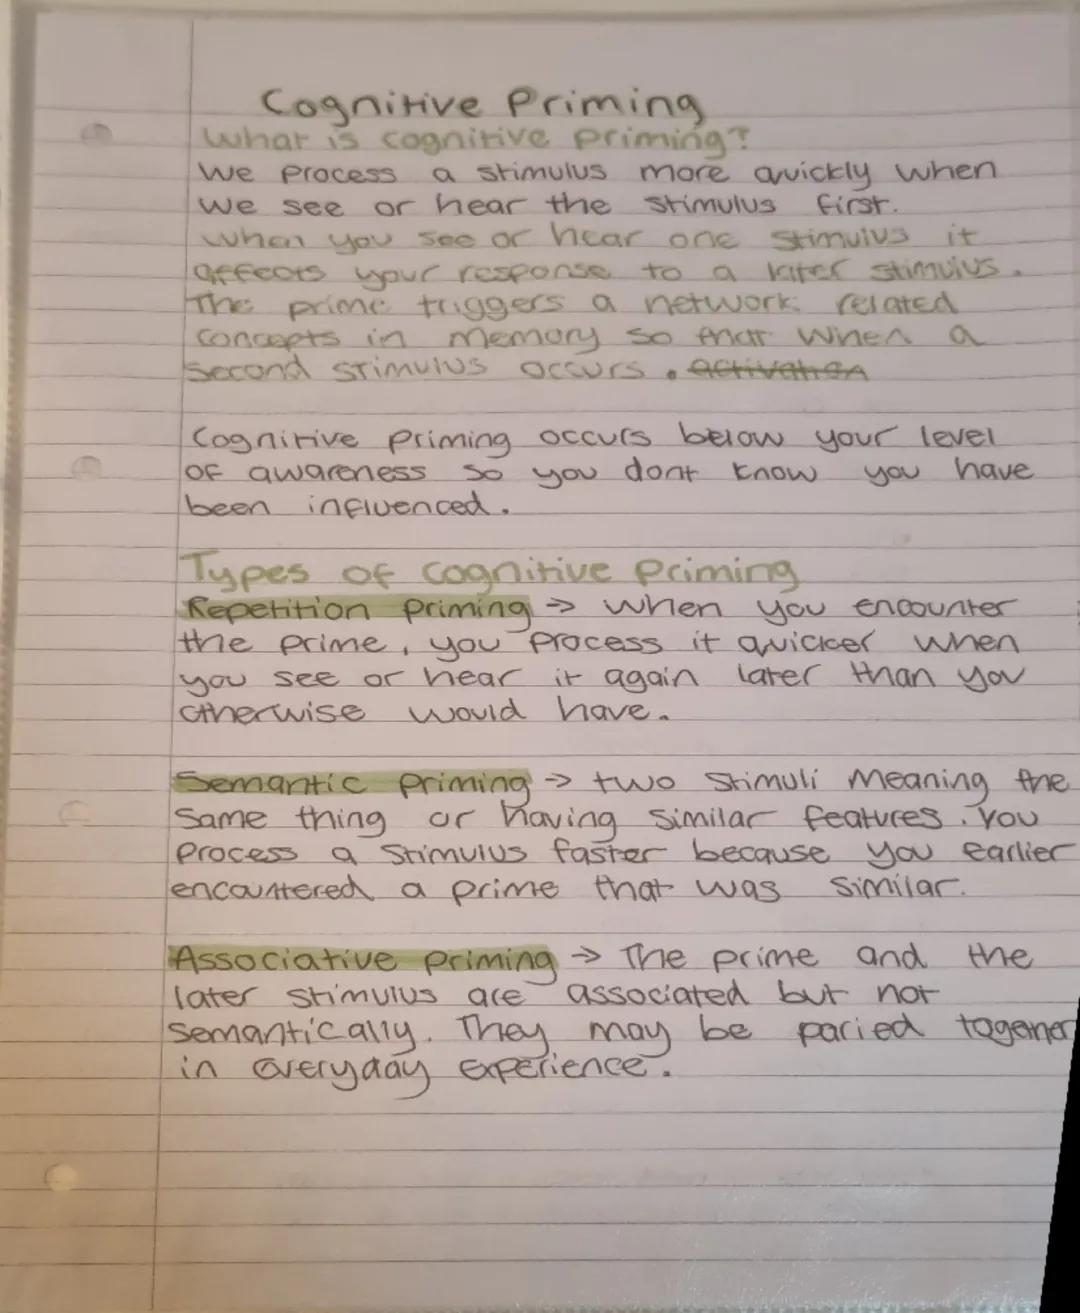 Cognitive Priming
What is cognitive priming?
We process a stimulus more quickly when
we see or hear the stimulus first.
When you see or hear one stimulus it
affects your response to a later stimulus.
The prime triggers a network related
concepts in memory so that when a
second stimulus occurs. activation
Cognitive priming occurs below your level
of awareness so you dont know you have
been influenced.
Types of cognitive priming
Repetition priming → when you encounter
the prime, you process it quicker when
you see or hear it again later than you
otherwise would have.
Semantic priming → two stimuli meaning the
same thing or having similar features. You
process a stimulus faster because you earlier
encountered a prime that was similar.
Associative priming → The prime and the
later stimulus are associated but not
semantically. They may be paried together
in everyday experience.